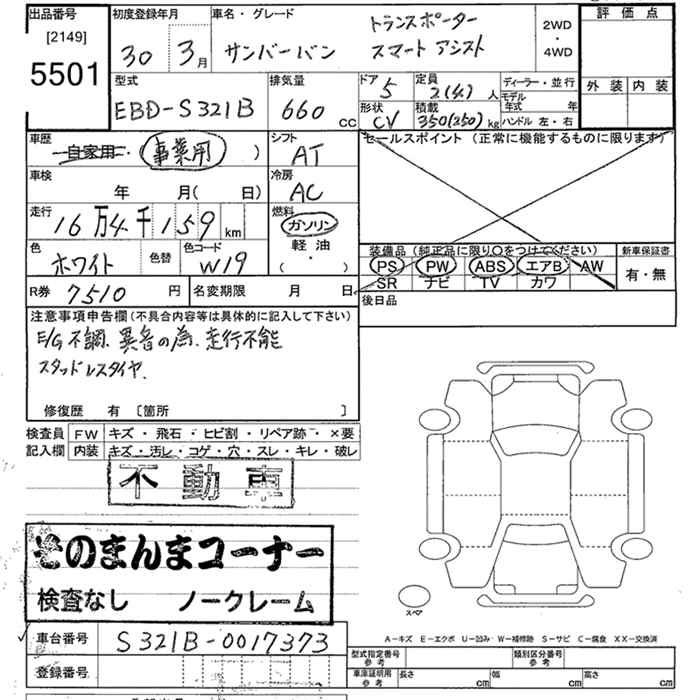 出品番号
[2149]
5501
初度登録年月
30 3月
車名・グレード
サンバーバン トランスポーター スマートアシスト
2WD
・
4WD
評価点
外装 内装
型式
EBD-S321B
排気量
660 cc
ドア 5
形状 CV
定員 2(4)人
積載 350(250)kg
ディーラー・並行
モデル年式 年
ハンドル 左・右
車歴
自家用・(事業用)
シフト
AT
セールスポイント(正常に機能するものに限ります)
車検
年 月(日)
冷房
AC
走行
16万4千159km
燃料
ガソリン
軽油
(・)
装備品(純正品に限り〇をつけてください)
PS PW ABS エアB AW
SR ナビ TV カワ
新車保証書
有・無
色
ホワイト
色替
色コード
W19
R券 7510円
名変期限 月 日
後日品
注意事項申告欄(不具合内容等は具体的に記入して下さい)
E/G不調、異音の為、走行不能
スタッドレスタイヤ.
修復歴 有〔箇所 〕
検査員記入欄
FW キズ・飛石・ヒビ割・リペア跡・×要
内装 キズ・汚レ・コゲ・穴・スレ・キレ・破レ
不動車
そのまんまコーナー
検査なし ノークレーム
スペア
A−キズ E−エクボ U−凹み W−補修跡 S−サビ C−腐食 XX−交換済
車台番号 S321B-0017373
登録番号
型式指定番号参考
類別区分番号参考
車庫証明用参考 長さ cm 幅 cm 高さ cm